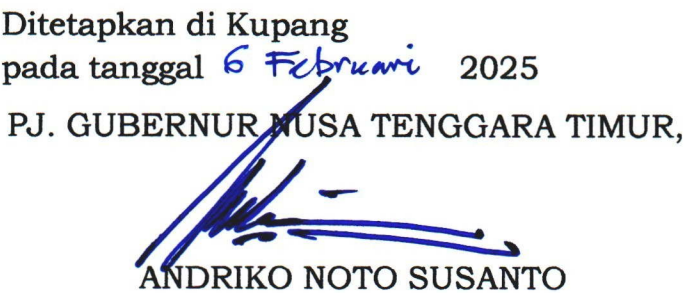 Ditetapkan di Kupang
pada tanggal 6 Februari 2025
PJ. GUBERNUR NUSA TENGGARA TIMUR,
ANDRIKO NOTO SUSANTO